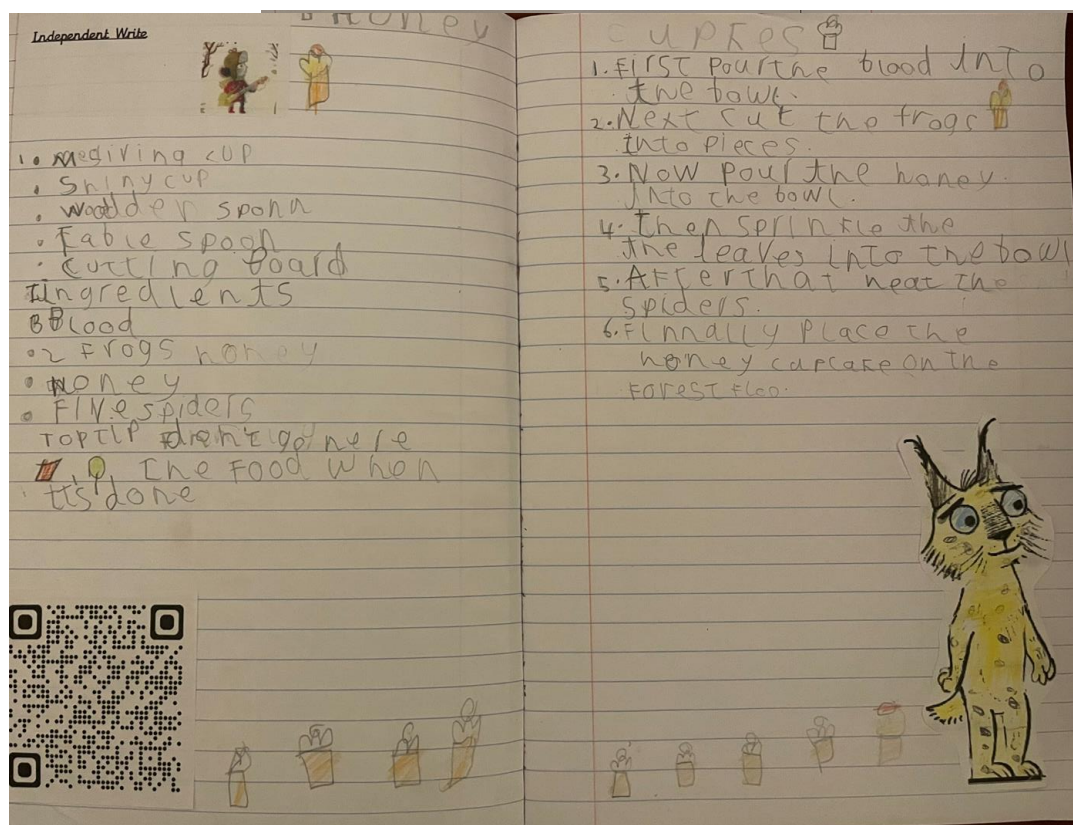 Independent Write
Honey
1. Megiring cup
. Shiny cup
. woodder sponn
. Table spoon
. Cutting board
Iingredients
BBlood
. 2 Frogs honey
. Honey
. FIVe spiders
TOPTIP
the Food when
It's done
cupkes
1. First pourthe blood Into
the bowl.
2. Next cut the frogs
Into pieces.
3. Now pour the honey.
Into the bowl.
4. then sprinkle the
the leaves into the bowl
5. Afterthat heat the
spiders.
6. Finnally Place the
honey cupcake on the
Forest floo.